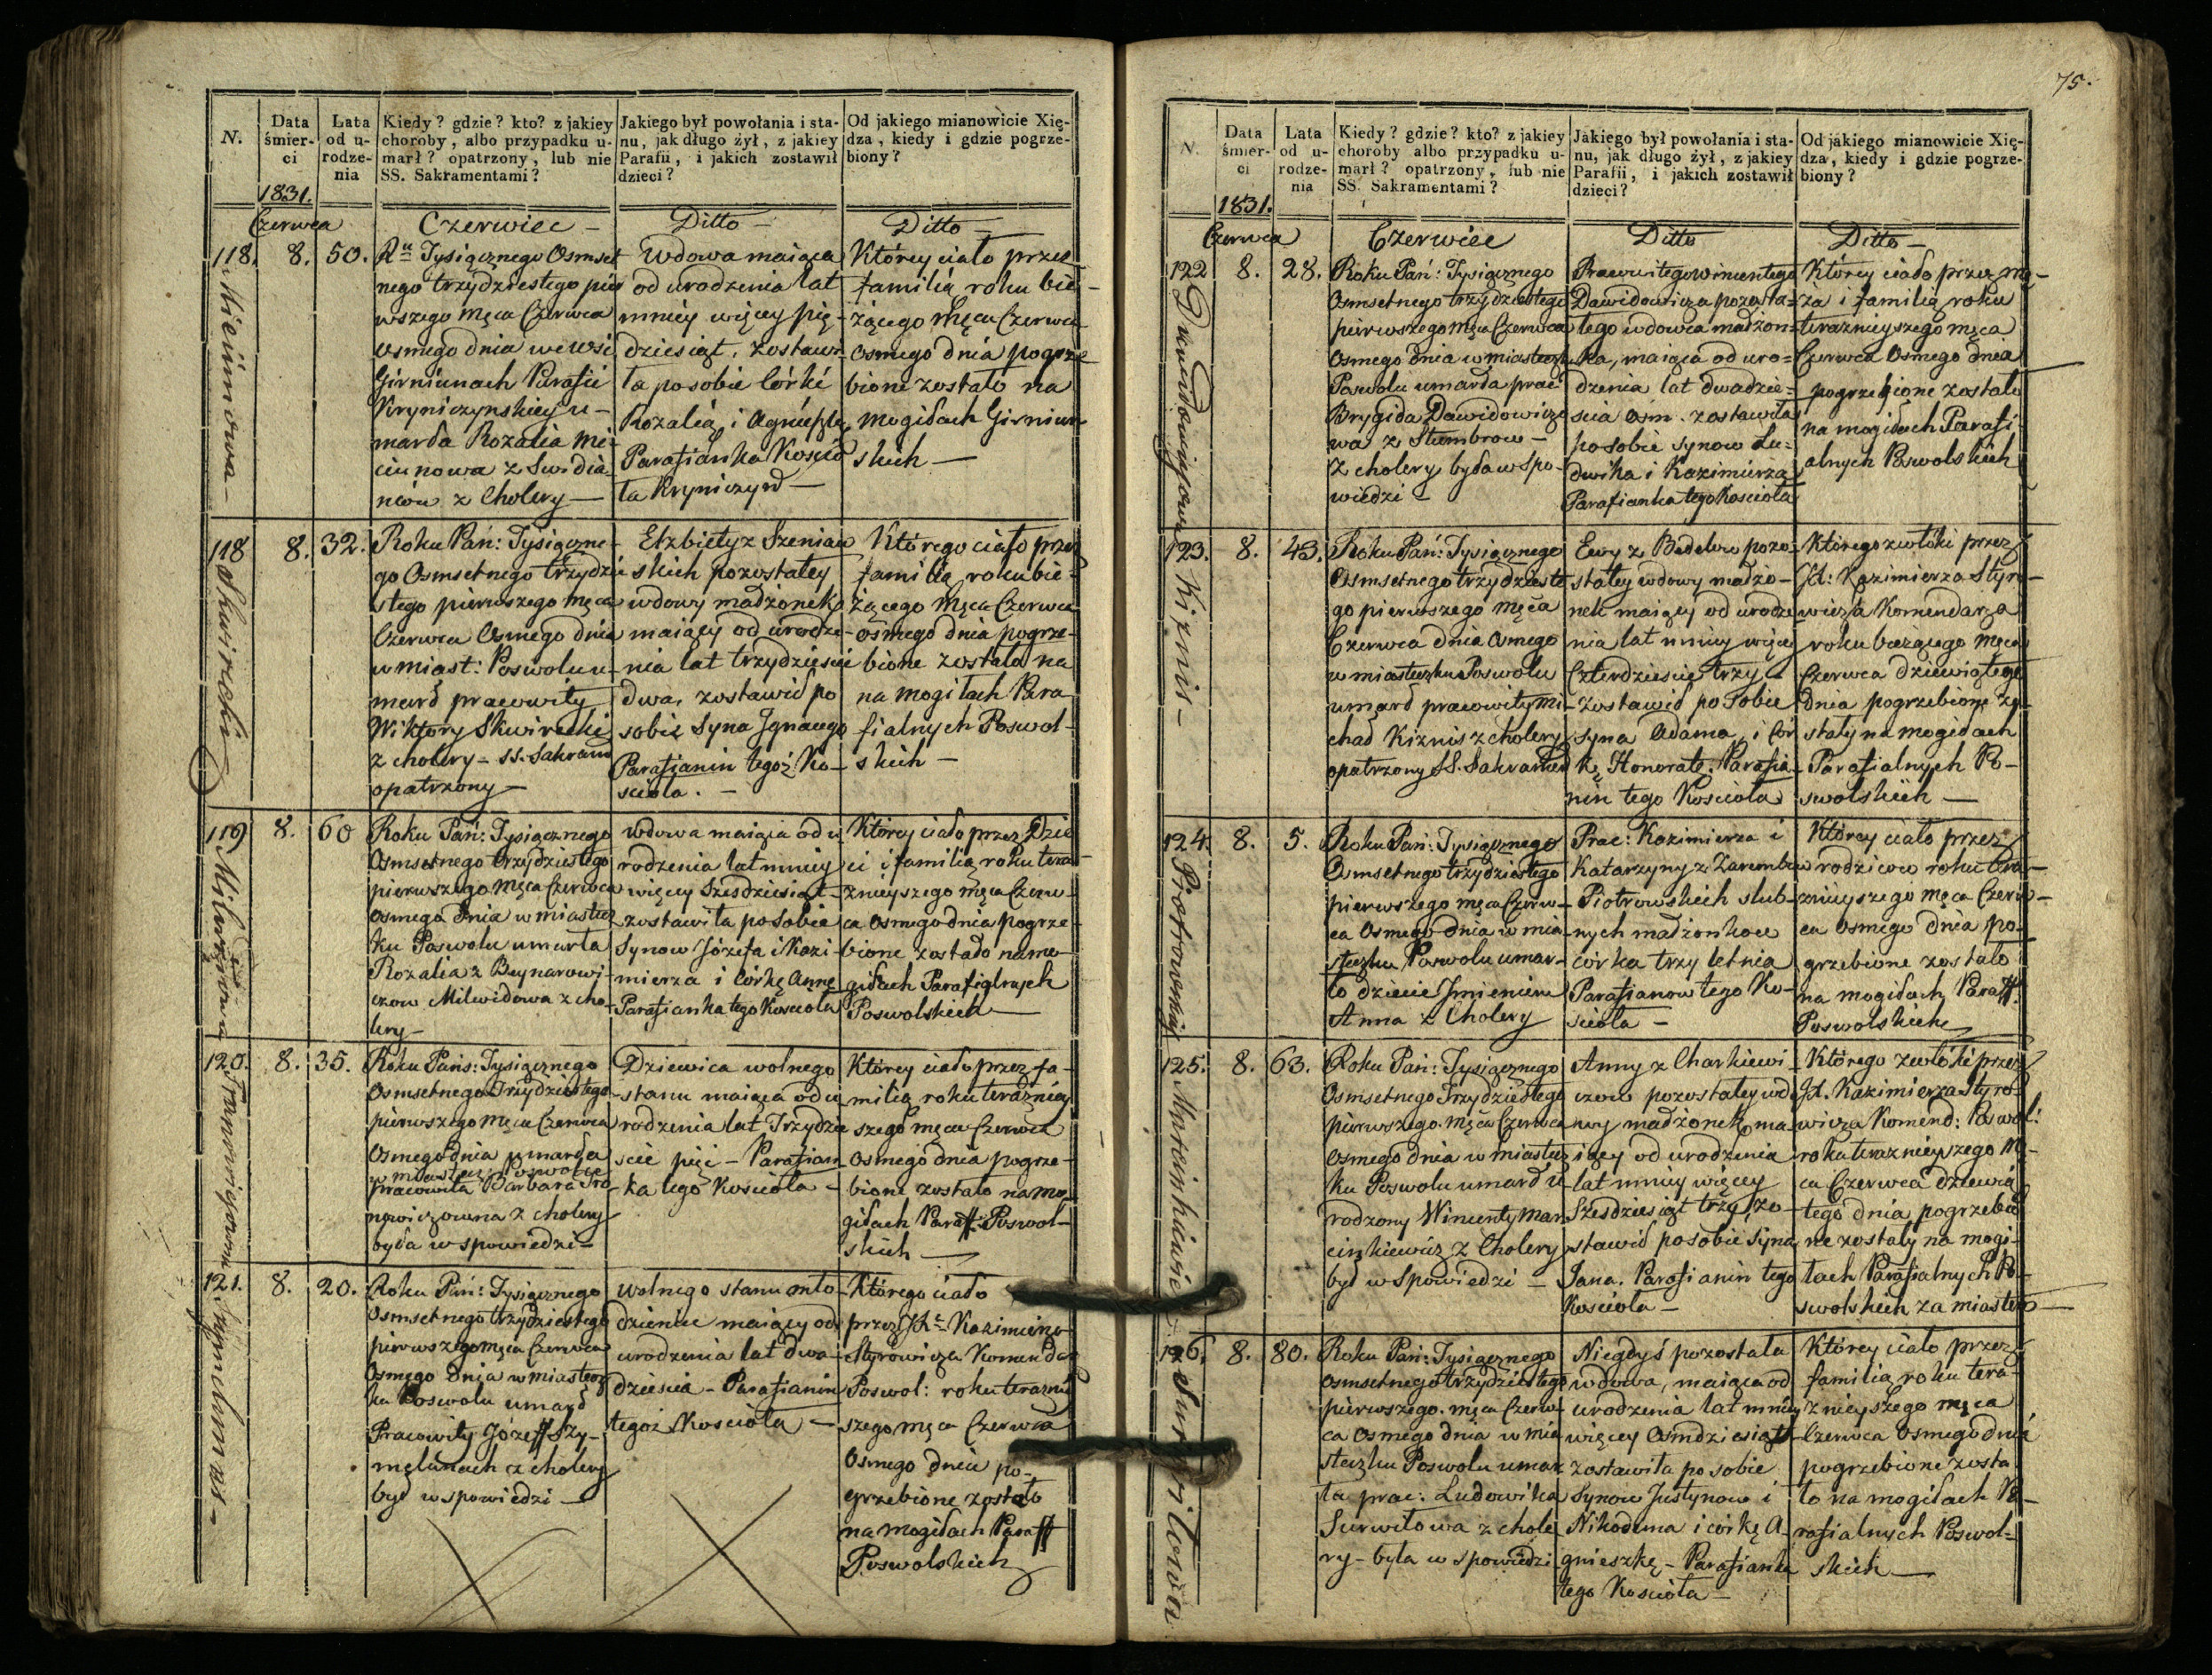 N.
Data
śmier-
ci
1831.
Lata
od u-
rodze-
nia
Kiedy? gdzie? kto? z jakiey
choroby, albo przypadku u-
marł? opatrzony, lub nie
SS. Sakramentami?
Jakiego był powołania i sta-
nu, jak długo żył, z jakiey
Parafii, i jakich zostawił
dzieci?
Od jakiego mianowicie Xię-
dza, kiedy i gdzie pogrze-
biony?
Czerwca
Czerwiec –
Ditto –
Ditto –
118.
8.
50.
Tysiącznego Osmset
nego trzydziestego pier
wszego męca Czerwca
osmego dnia we wsi
Girniunach Parafii
Kryniczynskiey u-
marła Rozalia Mi-
ciunowa z
z Cholery –
Wdowa maiąca
od urodzenia lat
mniey więcey pię-
dziesiąt. zostawi
ła po sobie Córki
Rozalią i Agnieszkę
Parafianka Kościo
ła Kryniczyn –
Którey ciało przez
familią roku bie-
żącego Męca Czerwca
osmego dnia pogrze-
bione zostało na
mogiłach Girniun-
skich –
118
8.
32.
Skwirecki
Roku Pań: Tysiączne-
go Osmsetnego trzydzie
stego pierwszego męca
Czerwca Osmego dnia
w miast: Poswolu u-
marł pracowity
Wiktory Skwirecki
z cholery – SS. Sakram
opatrzony –
Elzbiety z Szeniaw
skich pozostałey
wdowy małżonek
maiący od urodze-
nia lat trzydzieści
dwa, zostawił po
sobie Syna Ignacego
Parafianin tegoż Ko-
scioła. –
Którego ciało przez
familią roku bie-
żącego Męca Czerwca
osmego dnia pogrze-
bione zostało na
na mogiłach Para
fialnych Poswol-
skich –
119
8.
60
Milwidowa
Roku Pań: Tysiącznego
Osmsetnego trzydziestego
pierwszego męca Czerwca
osmego dnia w miastecz
ku Poswolu umarła
Rozalia z Beynarowi-
czow Milwidowa z cho-
lery –
wdowa maiąca od u
rodzenia lat mniey
więcey Szesdziesiąt
zostawiła po sobie
Synow Józefa i Kazi-
mierza i Córkę Annę
Parafianka tego Kościoła
Którey ciało przez Dzie
ci i familią roku tera-
znieyszego męca Czerw-
ca osmego dnia pogrze-
bione zostało na mo-
giłach Parafialnych
Poswolskich –
120.
8.
35.
Roku Pańs: Tysiącznego
Osmsetnego Trzydziestego
pierwszego Męca Czerwca
Osmego dnia umarła
w miastecz: Poswolu
pracowita Barbara Fro
nowiczowna z cholery
była w spowiedzi –
Dziewica wolnego
stanu maiąca od u
rodzenia lat Trzydzie
scie pięć – Parafian
ka tego Kościoła –
Którey ciało przez fa-
milią roku teraźniey
szego męca Czerwca
osmego dnia pogrze-
bione zostało na mo-
giłach Paraff: Poswol-
skich –
121.
8.
20.
Roku Pań: Tysiącznego
Osmsetnego trzydziestego
pierwszego męca Czerwca
Osmego dnia w miastecz
ku Poswolu umarł
Pracowity Józeff Szy-
melunach z cholery
był w spowiedzi –
wolnego stanu mło-
dzieniec maiący od
urodzenia lat dwa-
dziescia – Parafianin
tegoż Kościoła –
Którego ciało
przez Kazimierza
Styrowicza Komendarz
Poswol: roku teraźniey
szego męca Czerwca
Osmego dnia po-
grzebione zostało
na mogiłach Paraff
Poswolskich
75.
N.
Data
śmier-
ci
1831.
Lata
od u-
rodze-
nia
Kiedy? gdzie? kto? z jakiey
choroby albo przypadku u-
marł? opatrzony, lub nie
SS. Sakramentami?
Jakiego był powołania i sta-
nu, jak długo żył, z jakiey
Parafii, i jakich zostawił
dzieci?
Od jakiego mianowicie Xię-
dza, kiedy i gdzie pogrze-
biony?
Czerwca
Czerwiec
Ditto
Ditto –
122
8.
28.
Dawidowiczowa
Roku Pań: Tysiącznego
Osmsetnego trzydziestego
pierwszego męca Czerwca
Osmego dnia w miasteczk
Poswolu umarła prac:
Brygida Dawidowiczo
wa z Stumbrow –
z cholery była w spo-
wiedzi –
Pracowitego Wincentego
Dawidowicza pozosta-
tego wdowca małżon-
ka, maiąca od uro-
dzenia lat dwadzie-
scia osm. zostawiła
po sobie Synow Lu-
dwika i Kazimierza
Parafianka tego Kościoła
Którey ciało przez mę-
ża i familią roku
teraznieyszego męca
Czerwca Osmego dnia
pogrzebione zostało
na mogiłach Parafi-
alnych Poswolskich
123.
8.
43.
Kiznis –
Roku Pań: Tysiącznego
Osmsetnego trzydzieste
go pierwszego męca
Czerwca dnia osmego
w miasteczku Poswolu
umarł pracowity Mi-
chał Kiznis z cholery
opatrzony SS. Sakramen
Ewy z Bedelow pozo-
stałey wdowy małżo-
nek maiący od urodze
nia lat mniey więcey
Czterdziescie trzy
zostawił po sobie
syna Adama, i Cór
kę Honoratę. Parafia-
nin tego Kościoła
Którego zwłóki przez
Jd: Kazimierza Styro-
wicza Komendarza
roku bieżącego męca
Czerwca dziewiątego
dnia pogrzebione zo-
stały na mogiłach
Parafialnych Po-
swolskich –
124.
8.
5.
Piotrowskiej
Roku Pań: Tysiącznego
Osmsetnego trzydziestego
pierwszego męca Czerw-
ca Osmego dnia w mia
steczku Poswolu umar-
ło dziecie Imieniem
Anna z Cholery
Prac: Kazimierza i
Katarzyny z Zarembow
Piotrowskich slub-
nych małżonkow
córka trzy letnia
Parafianow tego Ko-
scioła –
Którey ciało przez
rodzicow roku tera-
znieyszego męca Czerw-
ca osmego dnia po-
grzebione zostało
na mogiłach Paraff:
Poswolskich
125.
8.
63.
Marcinkiewicz
Roku Pań: Tysiącznego
Osmsetnego Trzydziestego
pierwszego męca Czerwca
osmego dnia w miastecz
ku Poswolu umarł u
rodzony Wincenty Mar
cinkiewicz z Cholery
był w Spowiedzi –
Anny z Charkiewi-
czow pozostałey wd
owy małżonek ma-
iący od urodzenia
lat mniey więcey
Szesdziesiąt trzy, zo-
stawił po sobie Syna
Jana. Parafianin tego
Kościoła –
Którego zwłóki przez
Jd. Kazimierza Styro-
wicza Komend: Poswol:
roku teraznieyszego M-
ca Czerwca dziewią
tego dnia pogrzebio
ne zostały na mogi-
łach Parafialnych Po-
swolskich za miastem –
126.
8.
80.
Surwiłowa
Roku Pań: Tysiącznego
osmsetnego trzydziestego
pierwszego męca Czerw-
ca Osmego dnia w mia
steczku Poswolu umar
ła prac: Ludowika
Surwiłowa z chole
ry – była w spowiedzi
Niegdyś pozostała
wdowa, maiąca od
urodzenia lat mniey
więcey Osmdziesiąt
zostawiła po sobie
Synow Justynow i
Nikodema i córkę A-
gnieszkę – Parafianka
tego Kościoła –
Którey ciało przez
familią roku tera-
znieyszego męca
Czerwca Osmego dnia
pogrzebione zosta
ło na mogiłach Pa-
rafialnych Poswol-
skich –